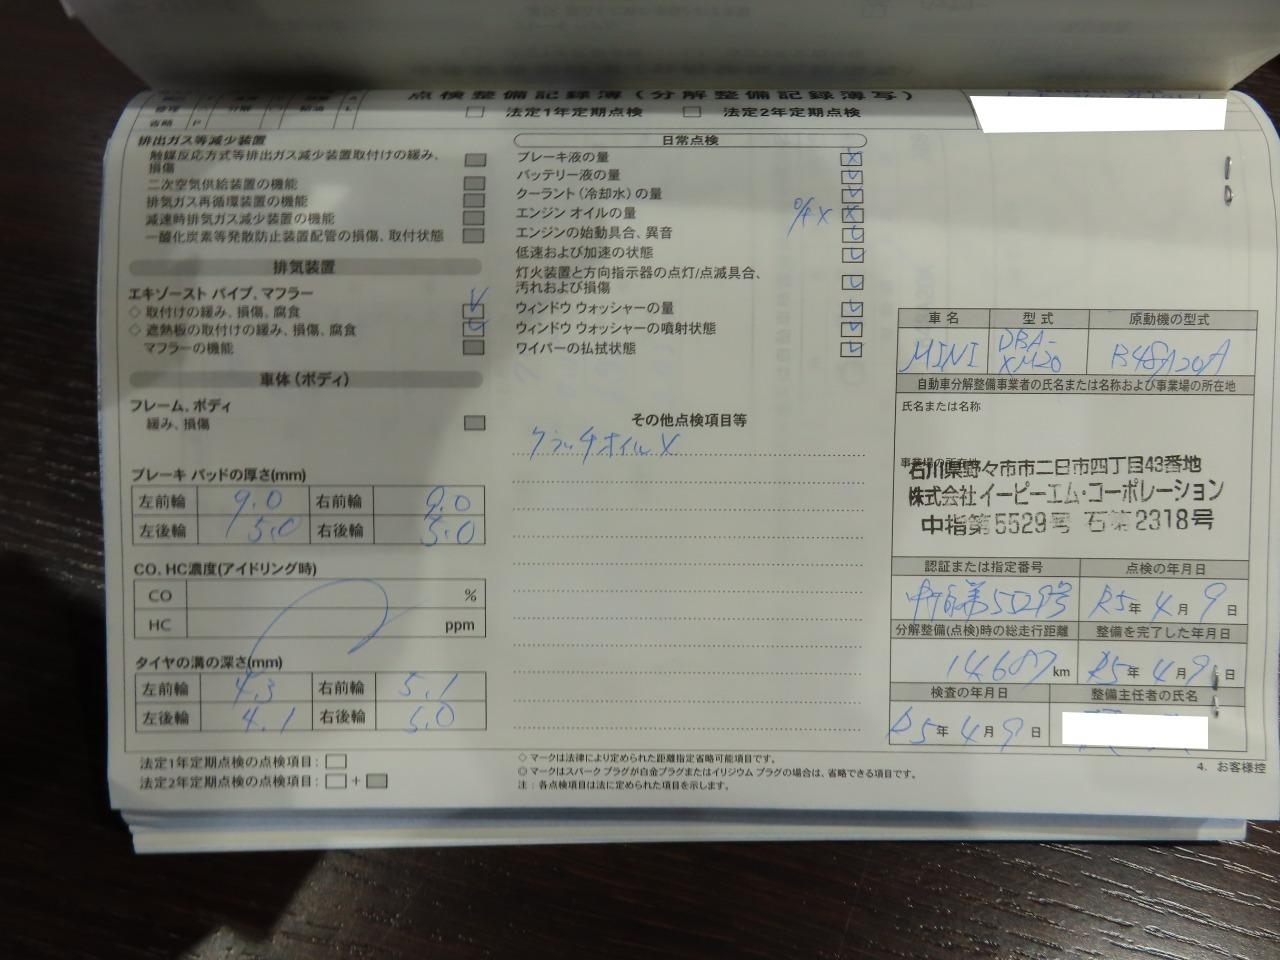 点検整備記録簿（分解整備記録簿写）
修理 分解 給油 L
省略 P
法定1年定期点検 法定2年定期点検
排出ガス等減少装置
触媒反応方式等排出ガス減少装置取付けの緩み、
損傷
二次空気供給装置の機能
排気ガス再循環装置の機能
減速時排気ガス減少装置の機能
一酸化炭素等発散防止装置配管の損傷、取付状態
排気装置
エキゾースト パイプ、マフラー
◇ 取付けの緩み、損傷、腐食
◇ 遮熱板の取付けの緩み、損傷、腐食
マフラーの機能
車体（ボディ）
フレーム、ボディ
緩み、損傷
ブレーキ パッドの厚さ(mm)
左前輪 9.0 右前輪 9.0
左後輪 5.0 右後輪 5.0
CO、HC濃度(アイドリング時)
CO %
HC ppm
タイヤの溝の深さ(mm)
左前輪 4.3 右前輪 5.1
左後輪 4.1 右後輪 5.0
法定1年定期点検の点検項目：
法定2年定期点検の点検項目： +
日常点検
ブレーキ液の量 X
バッテリー液の量
クーラント（冷却水）の量
エンジン オイルの量 O/F X X
エンジンの始動具合、異音
低速および加速の状態
灯火装置と方向指示器の点灯/点滅具合、
汚れおよび損傷
ウィンドウ ウォッシャーの量
ウィンドウ ウォッシャーの噴射状態
ワイパーの払拭状態
その他点検項目等
クラッチオイル X
◇ マークは法律により定められた距離指定省略可能項目です。
◎ マークはスパーク プラグが白金プラグまたはイリジウム プラグの場合は、省略できる項目です。
注：各点検項目は法に定められた項目を示します。
車名 型式 原動機の型式
MINI DBA-XM20 B48A20A
自動車分解整備事業者の氏名または名称および事業場の所在地
氏名または名称
事業場の所在地
石川県野々市市二日市四丁目43番地
株式会社イーピーエム・コーポレーション
中指第5529号 石第2318号
認証または指定番号 点検の年月日
中指第5529号 R5年4月9日
分解整備(点検)時の総走行距離 整備を完了した年月日
14607km R5年4月9日
検査の年月日 整備主任者の氏名
R5年4月9日
4. お客様控